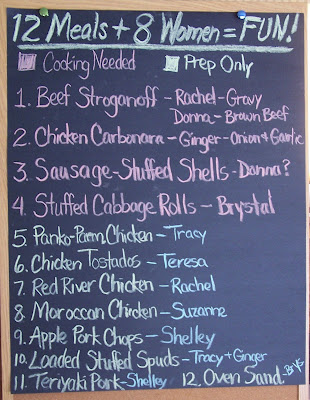 12 Meals + 8 Women = FUN!
Cooking Needed Prep Only
1. Beef Stroganoff - Rachel - Gravy
Donna - Brown Beef
2. Chicken Carbonara - Ginger - onion & Garlic
3. Sausage-Stuffed Shells - Donna?
4. Stuffed Cabbage Rolls - Brystal
5. Panko-Parm. Chicken - Tracy
6. Chicken Tostados - Teresa
7. Red River Chicken - Rachel
8. Moroccan Chicken - Suzanne
9. Apple Pork Chops - Shelley
10. Loaded Stuffed Spuds - Tracy + Ginger
11. Teriyaki Pork - Shelley 12. Oven Sand.